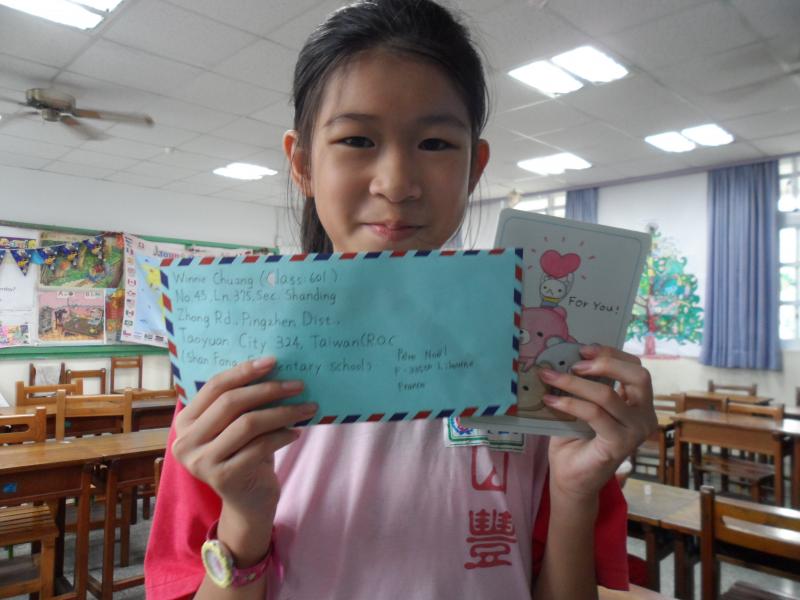 Winnie Chuang (Class:601)
No.45, Ln.375, Sec. Shanding
Zhong Rd., Pingzhen Dist.,
Taoyuan City 324, Taiwan(R.O.C
(Shan Fong Elementary school)
Père Noël
Libourne
France
For You!
山
豐